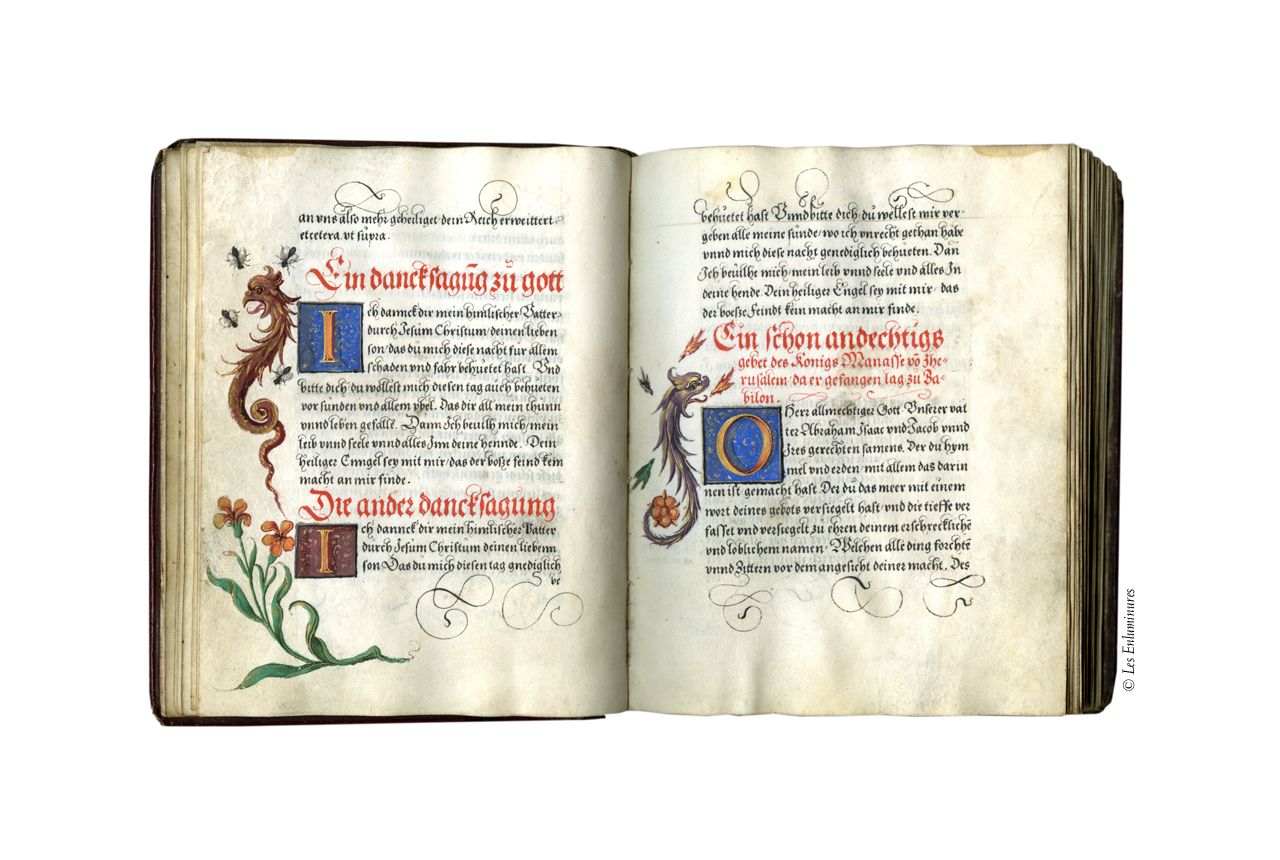 an vns also mehr geheiliget dein Reich erweittert
etcetera. vt supra.
Ein dancksagūg zů gott
Ich dannck dir mein himlischer Vatter
durch Jesum Christum, deinen lieben
son, das dů mich diese nacht für allem
schaden vnd fahr behuetet hast. Vnd
bitte dich, dů wöllest mich diesen tag auch behueten
vor sunden vnd allem vbel. Das dir all mein thunn
vnnd leben gefalle. Dann Ich beuilh mich, mein
leib vnnd seele vnnd alles Inn deine hennde. Dein
heiliger Enngel sey mit mir, das der boße feind kein
macht an mir finde.
Die ander dancksagung
Ich dannck dir mein himlischer Vatter
durch Jesum Christum deinen liebenn
son Das dů mich diesen tag gnediglich
be
behuetet hast Vnnd bitte dich dů wellest mir ver-
geben alle meine sunde, wo ich vnrecht gethan habe
vnnd mich diese nacht genediglich behueten. Dan
Ich beuilhe mich, mein leib vnnd seele vnd alles In
deine hende. Dein heiliger Engel sey mit mir, das
der boeße Feindt kein macht an mir finde.
Ein schon andechtigs
gebet des Königs Manasse vō Jhe-
rusalem, da er gefangen lag zu Ba-
bilon.
O Herr allmechtiger Gott Vnserer vät
ter Abraham Isaac vnd Jacob vnnd
Ires gerechten samens. Der du hym
mel vnd erden, mit allem das darin
nen ist gemacht hast. Der dů das meer mit einem
wort deines gebots versiegelt hast, vnd die tieffe ver
fasset vnd versiegelt zu ehren deinem erschrecklichē
vnd loblichem namen. Welchen alle ding forchtē
vnnd Zittern vor dem angesicht deiner macht. Des
© Les Enluminures